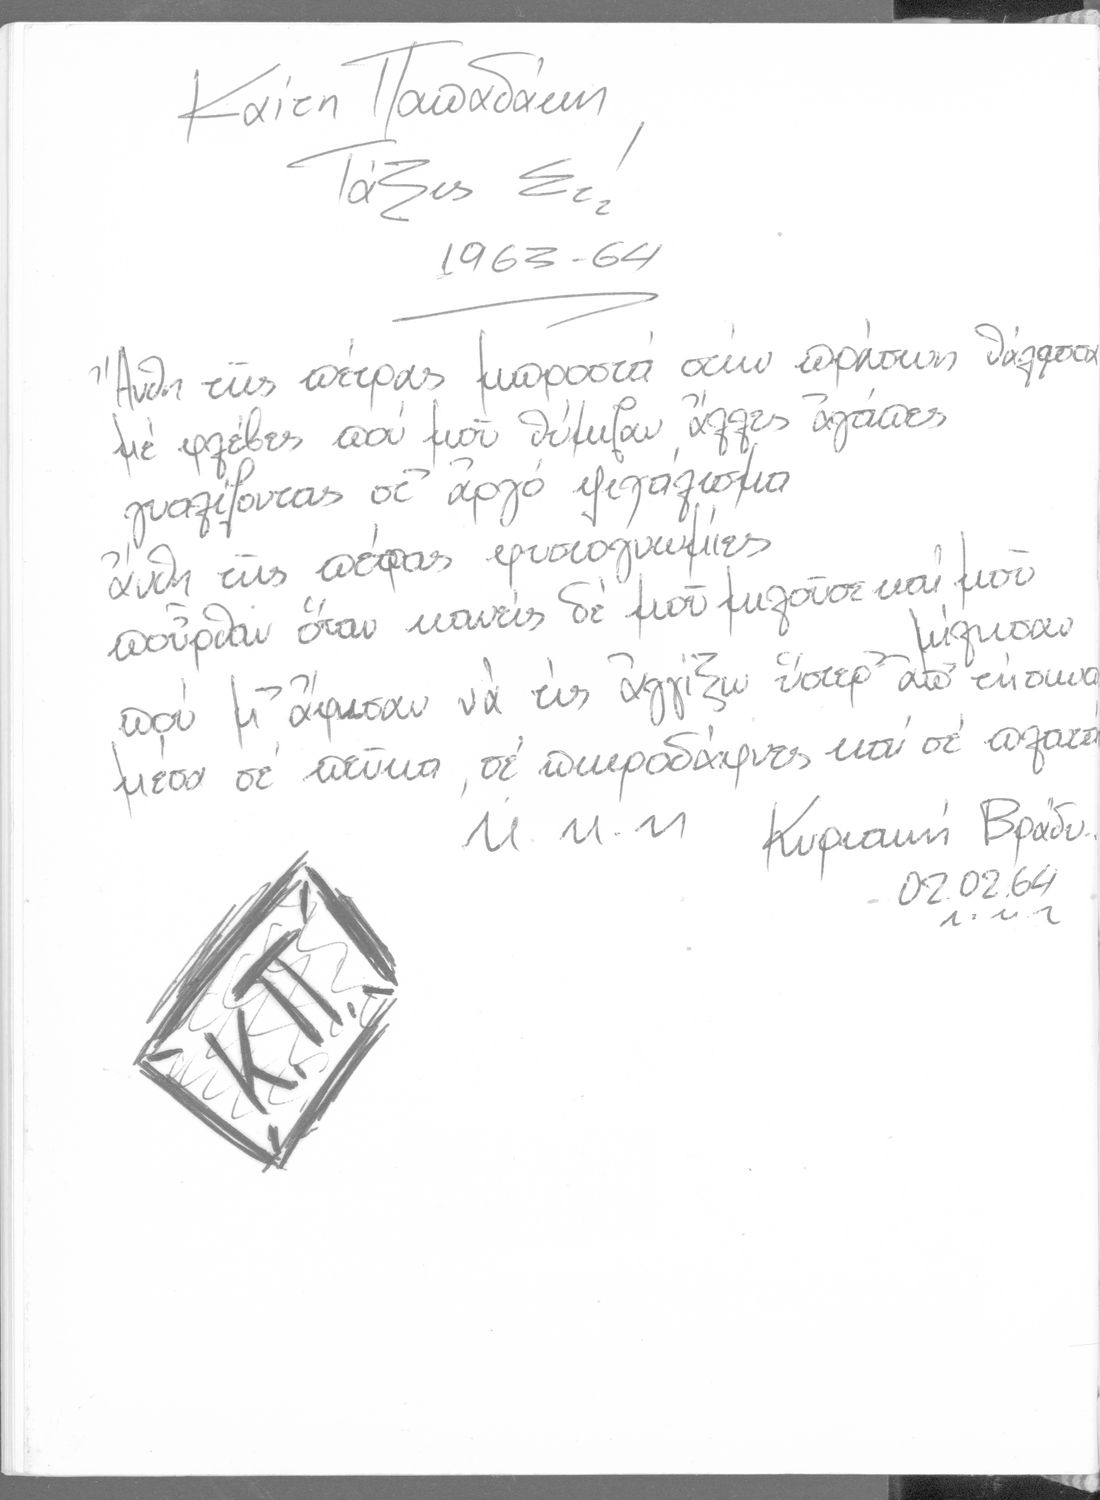 Καίτη Παπαδάκη
Τάξις Στ΄
1963-64
Ἄνθη τῆς πέτρας μπροστά στήν πράσινη θάλασσα
μέ φλέβες πού μοῦ θύμιζαν ἄλλες ἀγάπες
γυαλίζοντας σέ ἀργό ψιχάλισμα
ἄνθη τῆς πέτρας φυσιογνωμίες
ποὖρθαν ὅταν κανείς δέ μοῦ μιλοῦσε καί μοῦ
μίλησαν
πού μ' ἄφησαν νά τίς ἀγγίξω ὕστερ' ἀπ' τή σιωπ
μέσα σέ πεῦκα, σέ πικροδάφνες καί σέ πλατά
Κυριακή Βράδυ.
02.02.64
Κ.Π.